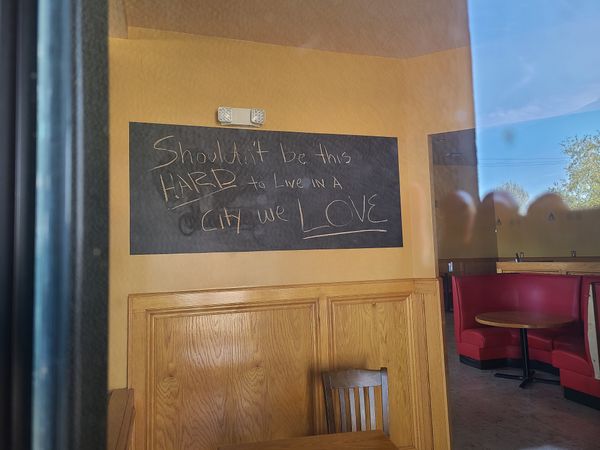 Shouldn't be this
HARD to Live IN A
City we LOVE